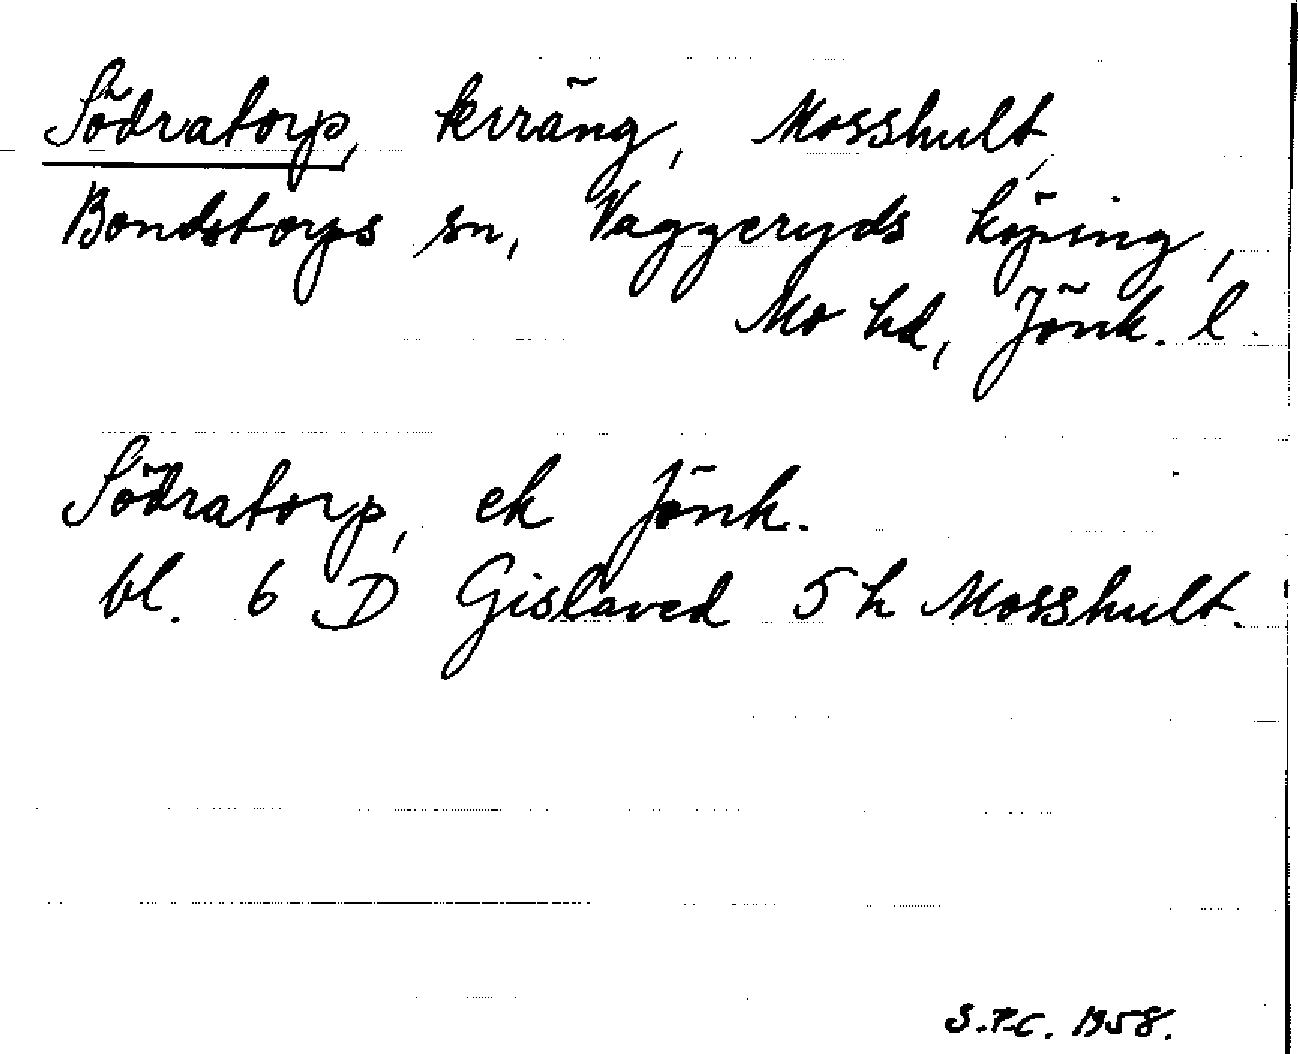 Södratorp, terräng, Mosshult,
Bondstorps sn, Vaggeryds köping,
Mo hd, Jönk. l.
Södratorp, ek Jönk.
bl. 6 D Gislaved 5 h Mosshult.
S.P.C. 1958.